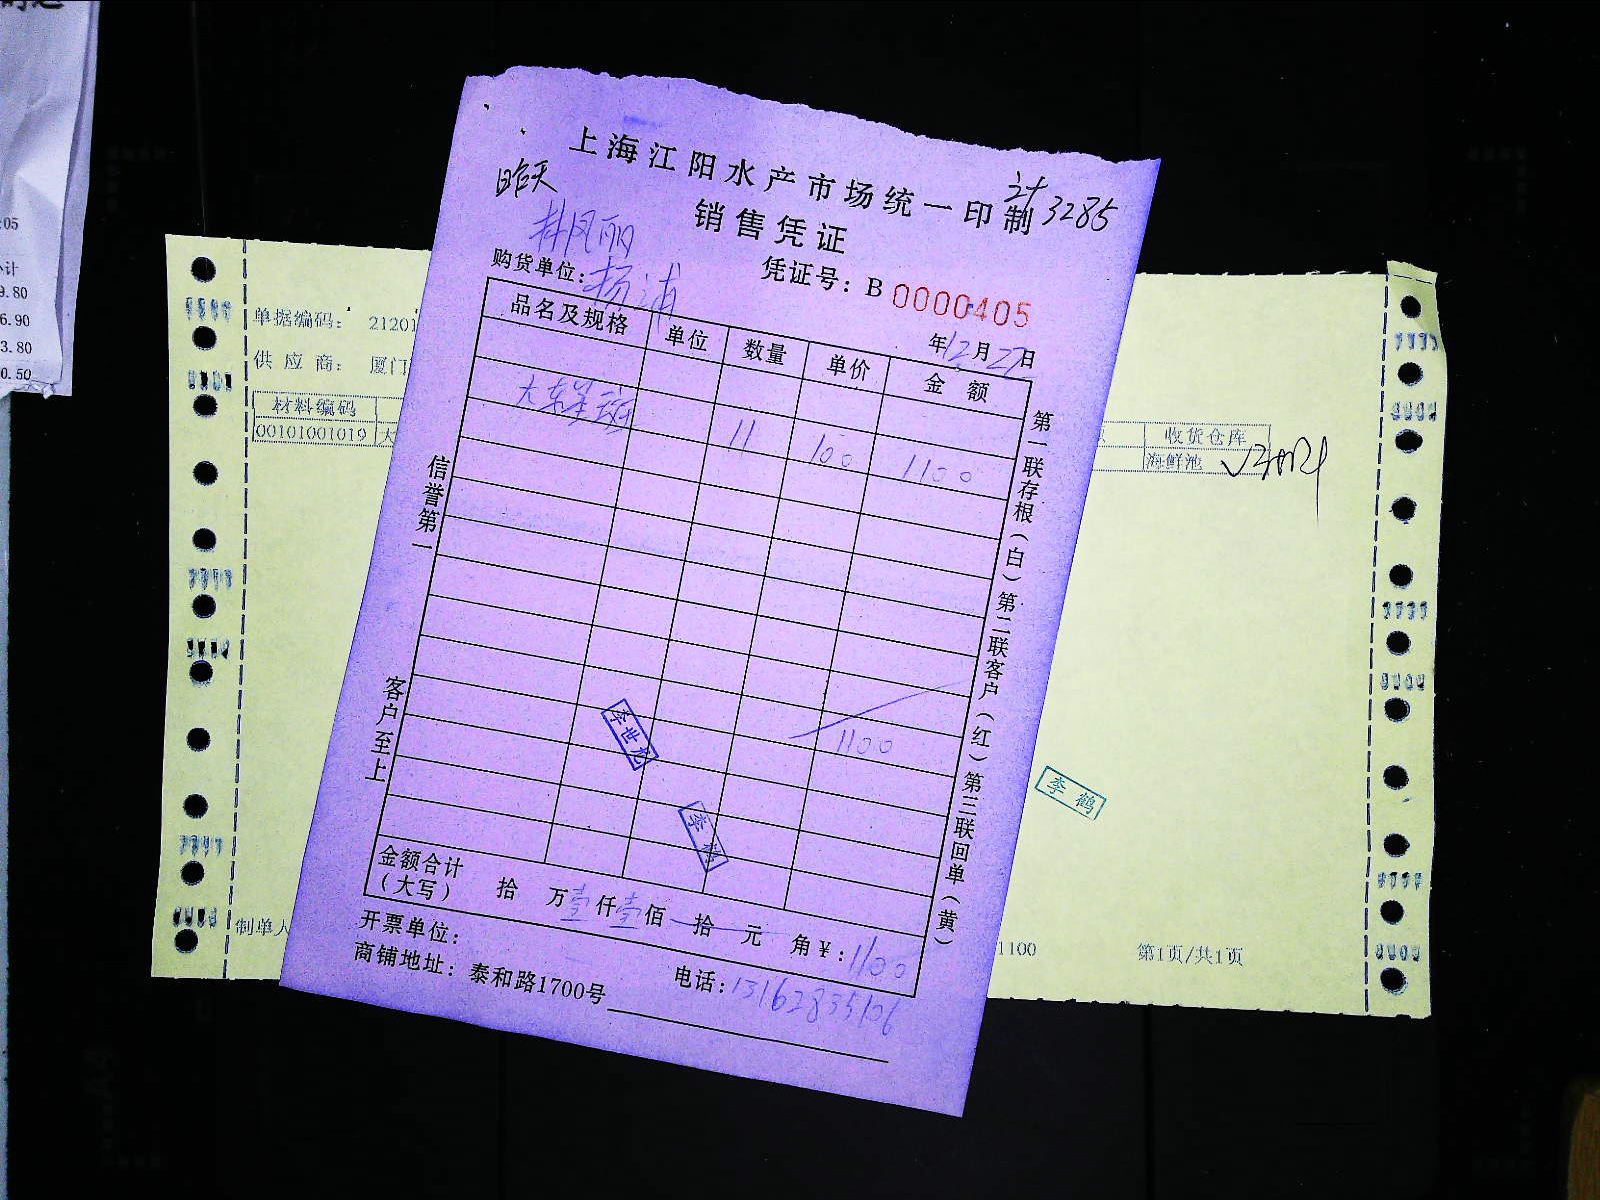 :05
计
9.80
6.90
3.80
0.50
上海江阳水产市场统一印制
计3285
昨天
销售凭证
林凤丽
购货单位：杨浦
凭证号：B 0000405
年12月27日
品名及规格 单位 数量 单价 金额
大东星斑 11 100 1100
1100
信誉第一
客户至上
第一联存根（白）第二联客户（红）第三联回单（黄）
李世
李鹤
金额合计（大写） 拾 万壹仟壹佰 拾 元 角¥：1100
开票单位：
商铺地址：泰和路1700号
电话：13162835106
单据编码： 21201
供应商： 厦门
材料编码
00101001019 大
收货仓库
海鲜池
李鹤
制单人
1100
第1页/共1页